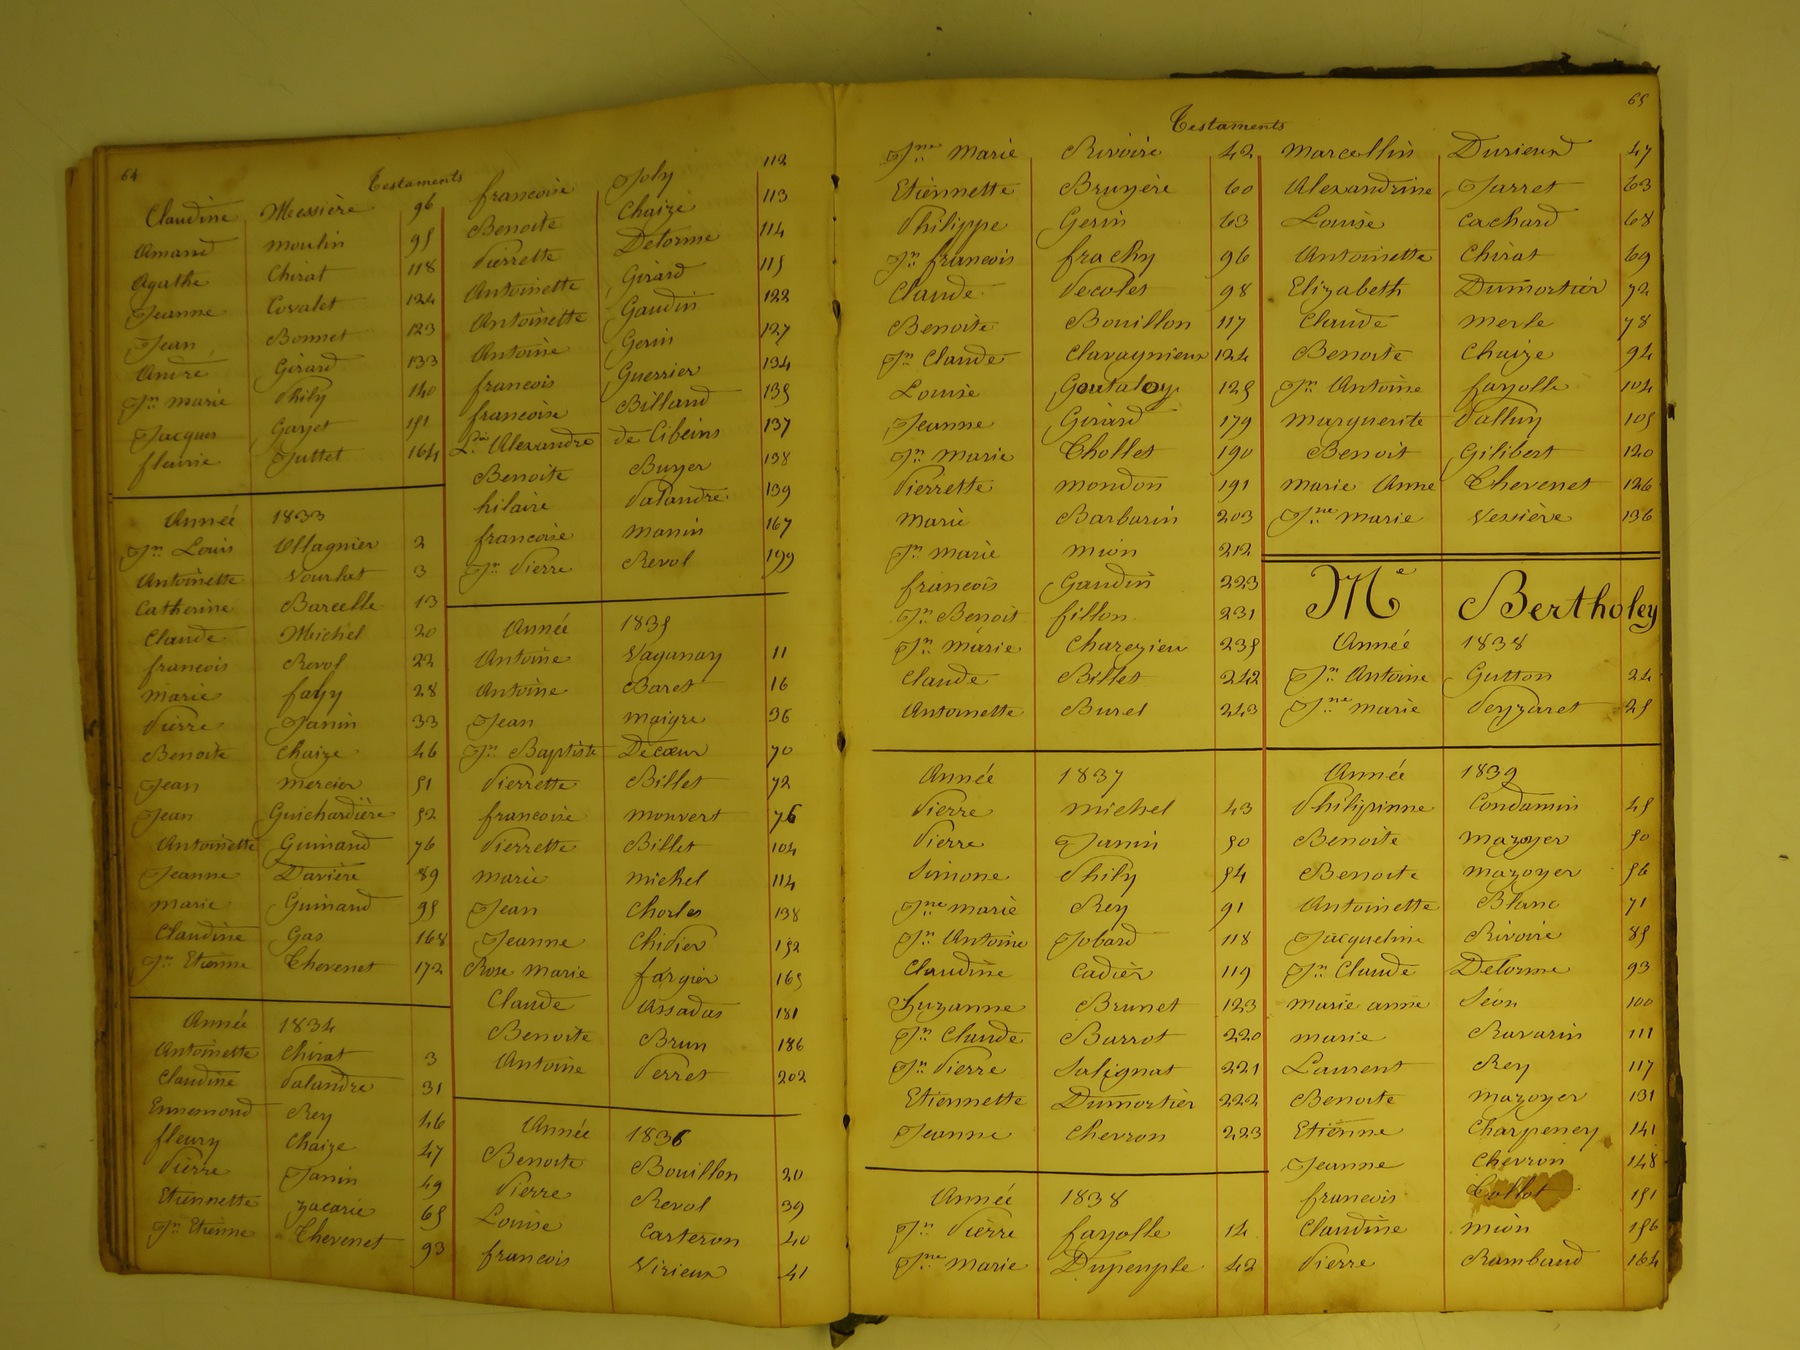 64
Testaments
Claudine Messière 96
Amand moulin 95
Agathe Chirat 118
Jeanne Covalet 124
Jean Bonnet 123
André Girard 133
Jn marie Phily 140
Jacques Garjet 151
fleurie Juttet 164
Année 1833
Jn Louis Ollagnier 2
Antoinette Vourlat 3
Catherine Barcelle 13
Claude Meichel 20
francois Revol 22
marie fahy 28
Pierre Janin 33
Benoite Chaize 46
Jean mercier 51
Jean Guichardière 52
Antoinette Guinand 76
Jeanne Davière 89
marie Guinand 95
Claudine Gas 168
Jn Etienne Thevenet 172
Année 1834
Antoinette Chirat 3
Claudine Palandre 31
Ennemond Rey 46
fleury Chaize 47
Pierre Janin 49
Etiennette zacarie 65
Jn Etienne Thevenet 93
francoise Joly 112
Benoite Chaize 113
Pierrette Delorme 114
Antoinette Girard 115
Antoinette Gaudin 122
Antoine Gerin 127
francois Guerrier 134
francoise Billand 135
Ls Alexandre de Cibeins 137
Benoite Buyer 138
hilaire Palandre 139
francoise manin 167
Jn Pierre Revol 199
Année 1835
Antoine Vaganay 11
Antoine Baret 16
Jean maigre 36
Jn Baptiste Décœur 70
Pierrette Billet 72
francoise monvert 76
Pierrette Billet 104
marie michel 114
Jean Chorles 138
Jeanne Chidier 152
Rose Marie fargier 165
Claude Assadas 181
Benoite Brun 186
Antoine Perret 202
Année 1836
Benoite Bouillon 20
Pierre Revol 39
Louise Carteron 40
francois Virieux 41
65
Testaments
Jne Marie Rivoire 42
Etiennette Bruyère 60
Philippe Gerin 63
Jn francois frachy 96
Claude Decolet 98
Benoite Bouillon 117
Jn Claude Clavagnieux 124
Louise Goutaloy 125
Jeanne Girard 179
Jn Marie Thollet 190
Pierrette mondon 191
Marie Barbarin 203
Jn marie mion 212
francois Gaudin 223
Jn Benoit fillon 231
Jn marie Charezieu 235
Claude Billet 242
Antoinette Burel 243
Année 1837
Pierre michel 43
Pierre Janin 50
Simone Phily 54
Jne marie Rey 91
Jn Antoine Jobard 118
Claudine Cadier 119
Suzanne Brunet 123
Jn Claude Barrot 220
Jn Pierre Salignat 221
Etiennette Dumortier 222
Jeanne Chevron 223
Année 1838
Jn Pierre fayolle 14
Jne marie Dupeuple 42
Marcellin Durieux 47
Alexandrine Jarret 63
Louise Cachard 68
Antoinette Chirat 69
Elizabeth Dumortier 72
Claude Merle 78
Benoite Chaize 94
Jn Antoine fayolle 104
Marguerite Valluy 105
Benoit Gilibert 120
Marie Anne Thevenet 126
Jne marie Vessière 136
Me Bertholey
Année 1838
Jn Antoine Gutton 24
Jne marie Peyzaret 25
Année 1839
Philipinne Condamin 45
Benoite Mazoyer 50
Benoite Mazoyer 56
Antoinette Blanc 71
Jacqueline Rivoire 85
Jn Claude Delorme 93
Marie anne Séon 100
marie Ravarin 111
Laurent Rey 117
Benoite Mazoyer 131
Etienne Charpeney 141
Jeanne Chevron 148
francois Collot 151
Claudine mion 156
Pierre Rambaud 164